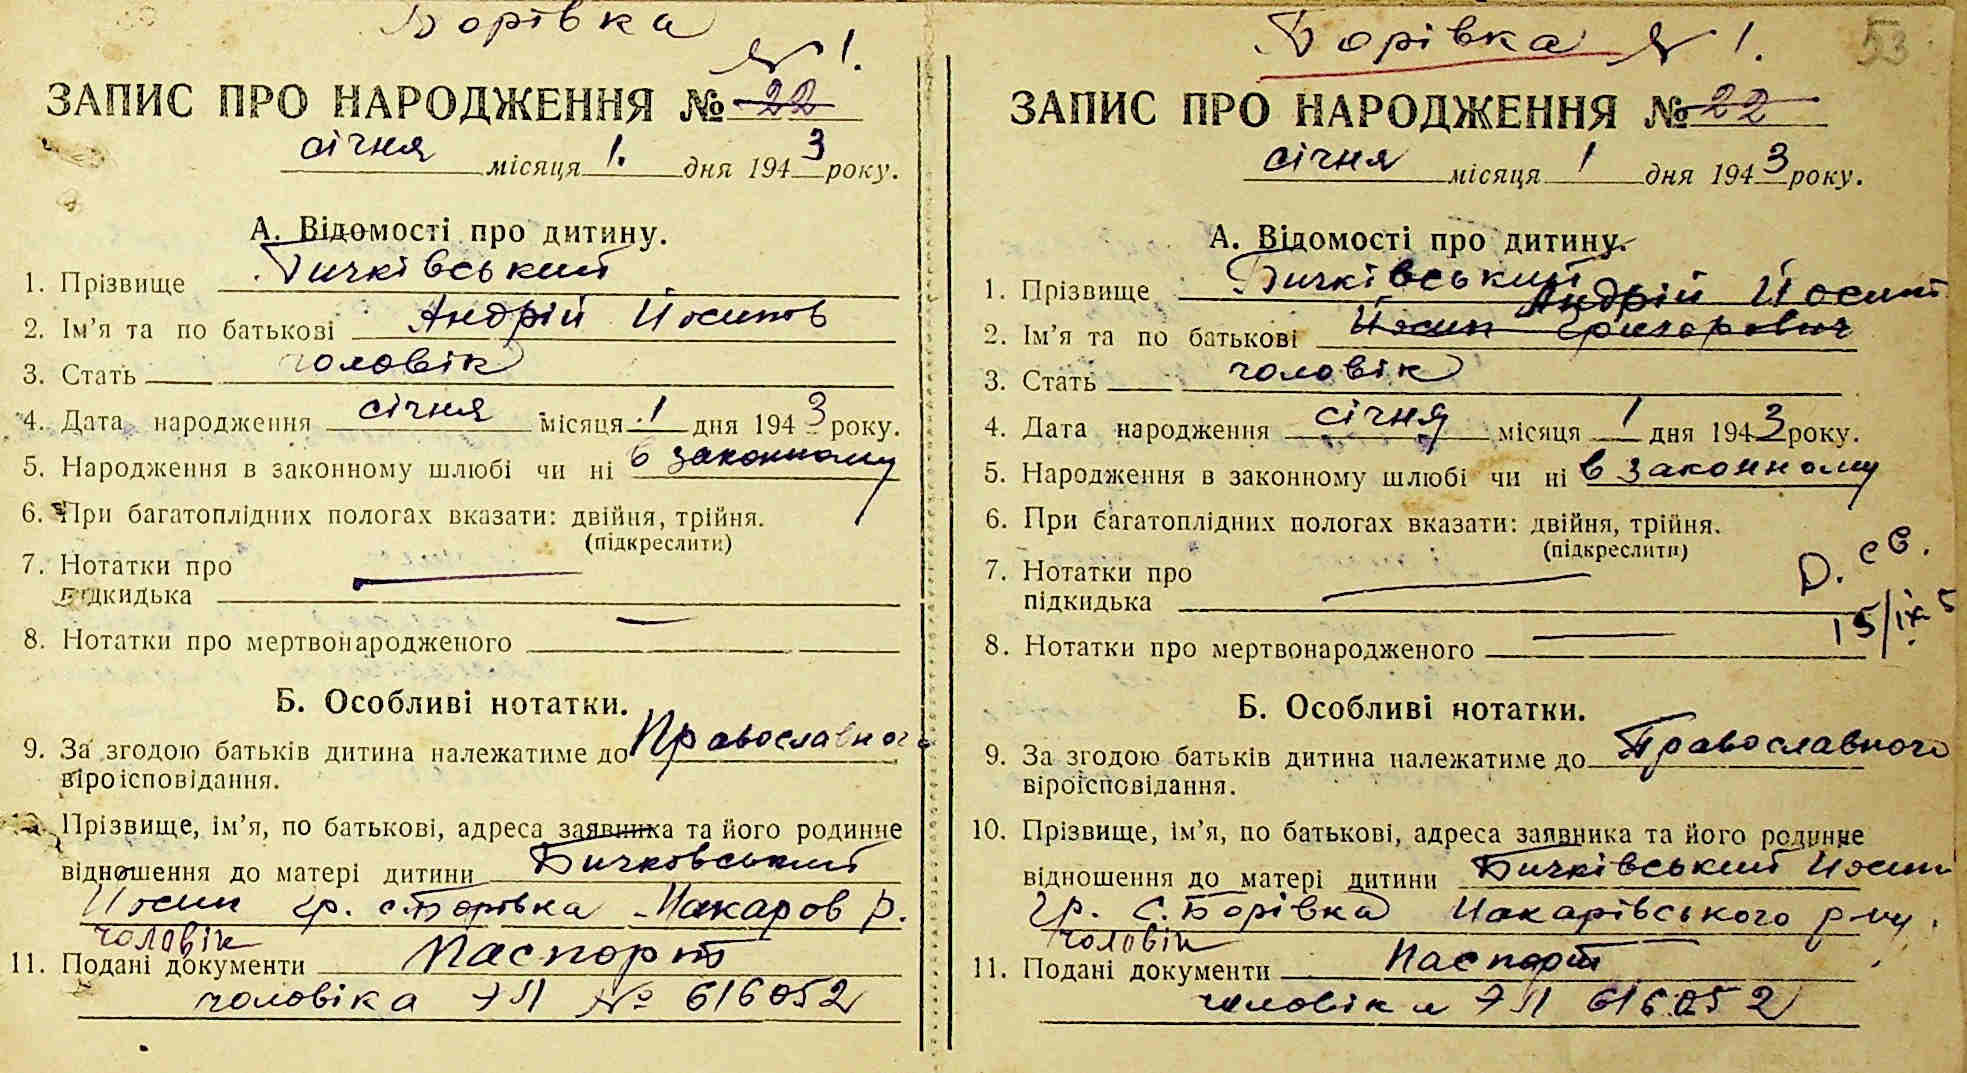 Борівка
№ 1.
ЗАПИС ПРО НАРОДЖЕННЯ № 22
січня місяця 1. дня 1943 року.
А. Відомості про дитину.
1. Прізвище Бичківський
2. Ім’я та по батькові Андрій Йосипов
3. Стать чоловік
4. Дата народження січня місяця 1 дня 1943 року.
5. Народження в законному шлюбі чи ні в законному
6. При багатоплідних пологах вказати: двійня, трійня.
(підкреслити)
7. Нотатки про
підкидька —
8. Нотатки про мертвонародженого —
Б. Особливі нотатки.
9. За згодою батьків дитина належатиме до Православного
віроісповідання.
Прізвище, ім’я, по батькові, адреса заявника та його родинне
відношення до матері дитини Бичковський
Йосип гр. с. Борівка Макаров р.
чоловік
11. Подані документи Паспорт
чоловіка ЭП № 616052
Борівка № 1.
53
ЗАПИС ПРО НАРОДЖЕННЯ № 22
січня місяця 1 дня 1943 року.
А. Відомості про дитину.
1. Прізвище Бичківський
Андрій Йосип
2. Ім’я та по батькові Йосип Григорович
3. Стать чоловік
4. Дата народження січня місяця 1 дня 1943 року.
5. Народження в законному шлюбі чи ні в законному
6. При багатоплідних пологах вказати: двійня, трійня.
(підкреслити)
7. Нотатки про
підкидька —
Д. св.
15/ІХ 5
8. Нотатки про мертвонародженого —
Б. Особливі нотатки.
9. За згодою батьків дитина належатиме до Православного
віроісповідання.
10. Прізвище, ім’я, по батькові, адреса заявника та його родинне
відношення до матері дитини Бичківський Йосип
гр. с. Борівка Макарівського р-ну.
чоловік
11. Подані документи Паспорт
чоловіка ЭП 616052